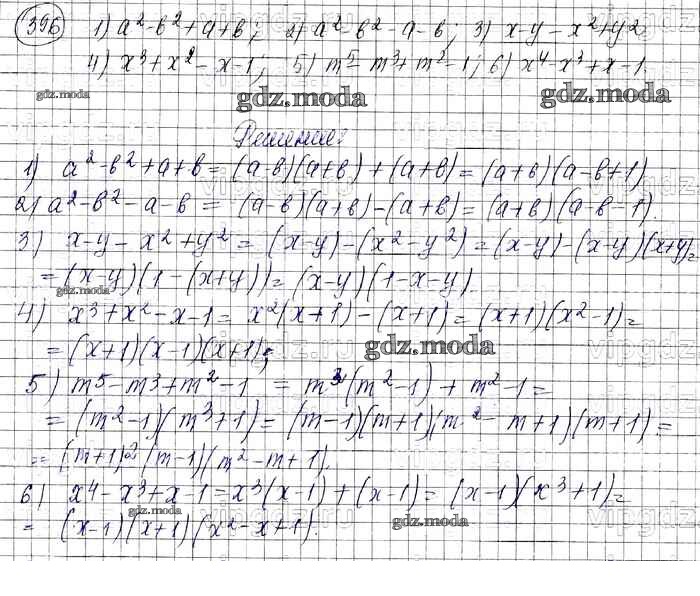 396 1) a²-b²+a+b; 2) a²-b²-a-b; 3) x-y-x²+y²
4) x³+x²-x-1; 5) m⁵-m³+m²-1; 6) x⁴-x³+x-1.
gdz.moda gdz.moda gdz.moda
Решение:
1) a²-b²+a+b = (a-b)(a+b)+(a+b) = (a+b)(a-b+1)
2) a²-b²-a-b = (a-b)(a+b)-(a+b) = (a+b)(a-b-1).
3) x-y-x²+y² = (x-y)-(x²-y²) = (x-y)-(x-y)(x+y) =
= (x-y)(1-(x+y)) = (x-y)(1-x-y).
gdz.moda
4) x³+x²-x-1 = x²(x+1)-(x+1) = (x+1)(x²-1) =
= (x+1)(x-1)(x+1);
gdz.moda vipgdz.ru
5) m⁵-m³+m²-1 = m³(m²-1)+m²-1 =
= (m²-1)(m³+1) = (m-1)(m+1)(m²-m+1)(m+1) =
= (m+1)²(m-1)(m²-m+1).
6) x⁴-x³+x-1 = x³(x-1)+(x-1) = (x-1)(x³+1) =
gdz.moda gdz.moda
= (x-1)(x+1)(x²-x+1).